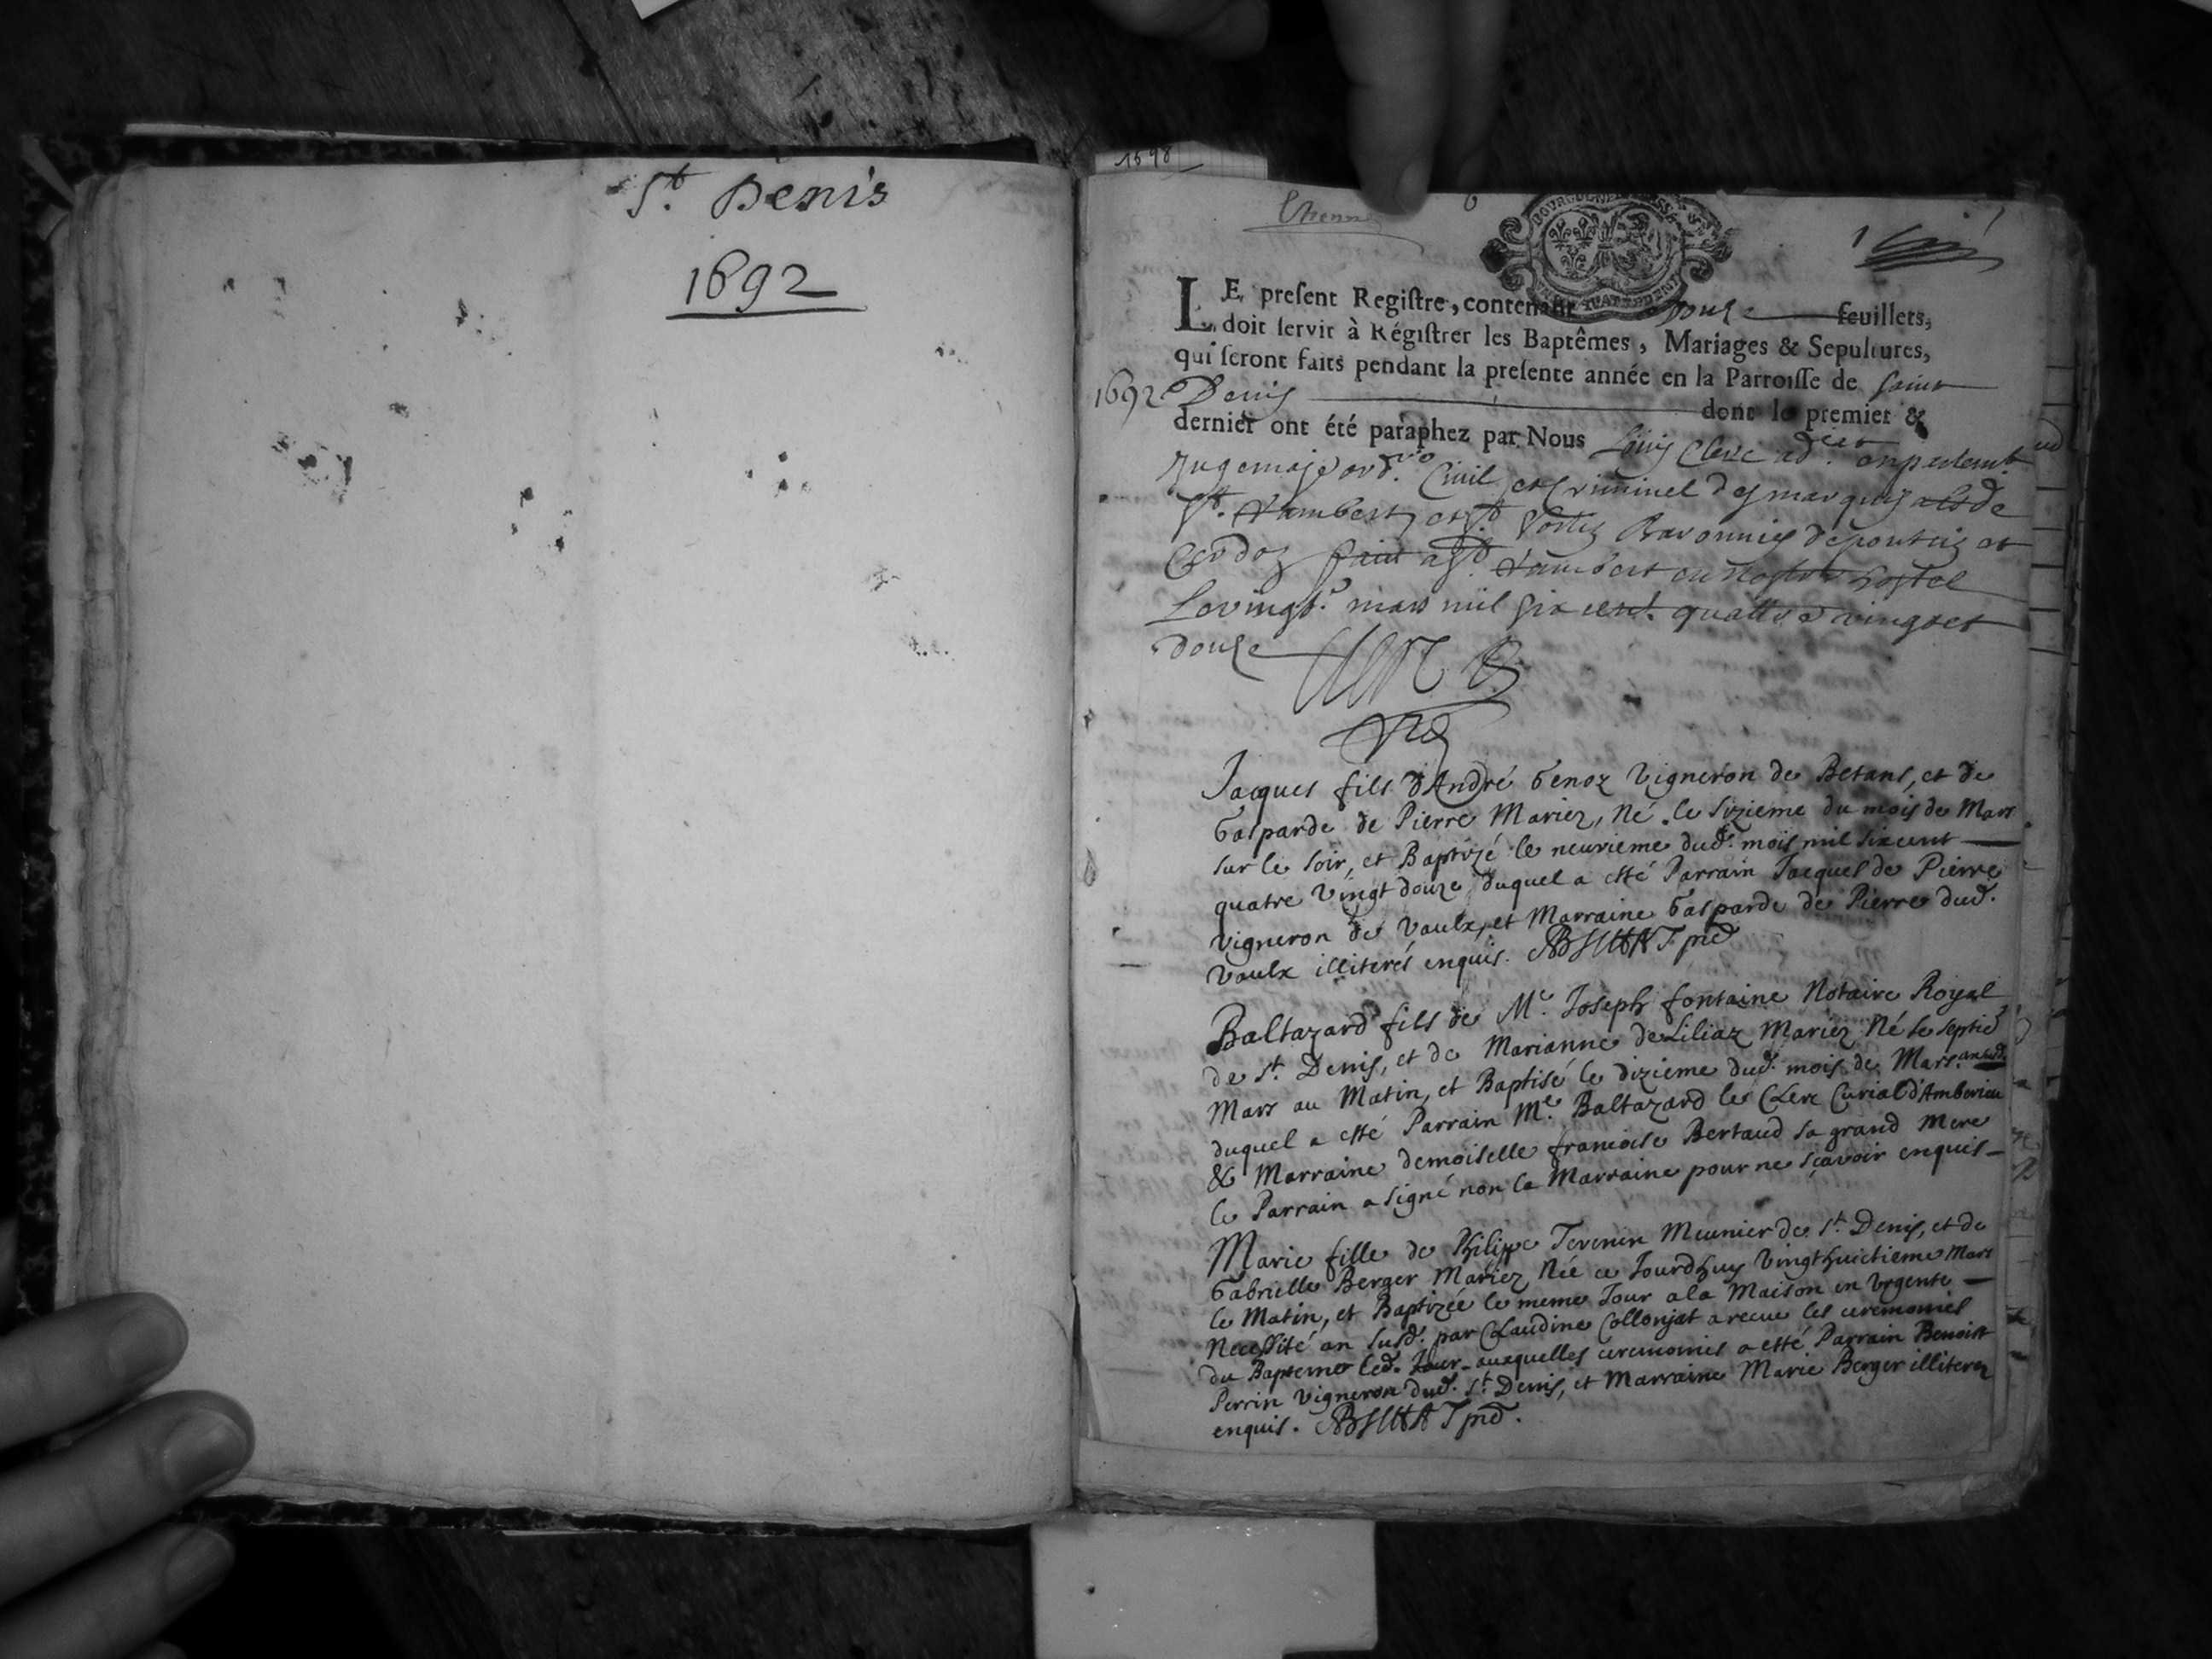 St. Denis
1692
1698
LE present Registre, contenant douze feuillets,
doit servir à Régistrer les Baptêmes, Mariages & Sepultures,
qui seront faits pendant la presente année en la Parroisse de Saint
1692 Denis dont le premier &
dernier ont été paraphez par Nous Louis Clerc
Juge maje ord.re Civil et Criminel des
St. Rambert et St. Baronnies de
St. Rambert en nostre hostel
Le vingt.e mars mil six cent quattre vingt et
douze
Jacques fils d'André Genoz Vigneron de Betans, et de
Gasparde de Pierre Mariez, Né le sizieme du mois de Mars
sur le soir, et Baptizé le neuvieme dud. mois mil six cent
quatre vingt douze, duquel a esté Parrain Jacques de Pierre
vigneron de Vaulx, et Marraine Gasparde de Pierre dud.
Vaulx illiterés enquis.
Baltazard fils de Me. Joseph fontaine Notaire Royal
de St. Denis, et de Marianne de Liliaz Mariez Né le septie
Mars au Matin, et Baptisé le dizieme dud. mois de Mars an susd.
duquel a esté Parrain Me. Baltazard le Clerc Curial d'Amberieu
& Marraine demoiselle francoise Bertaud sa grand Mere
le Parrain a signé non la Marraine pour ne sçavoir enquis
Marie fille de Philippe Tevenin Meunier de St. Denis, et de
Gabrielle Berger Mariez Née ce Jourdhuy Vingthuictieme Mars
le Matin, et Baptizée le meme Jour a la Maison en Urgente
Necessité an susd. par Claudine Collonjat a receue les ceremonies
du Bapteme led. Jour auxquelles ceremonies a esté Parrain Benoist
Perrin Vigneron dud. St. Denis, et Marraine Marie Berger illiterez
enquis.